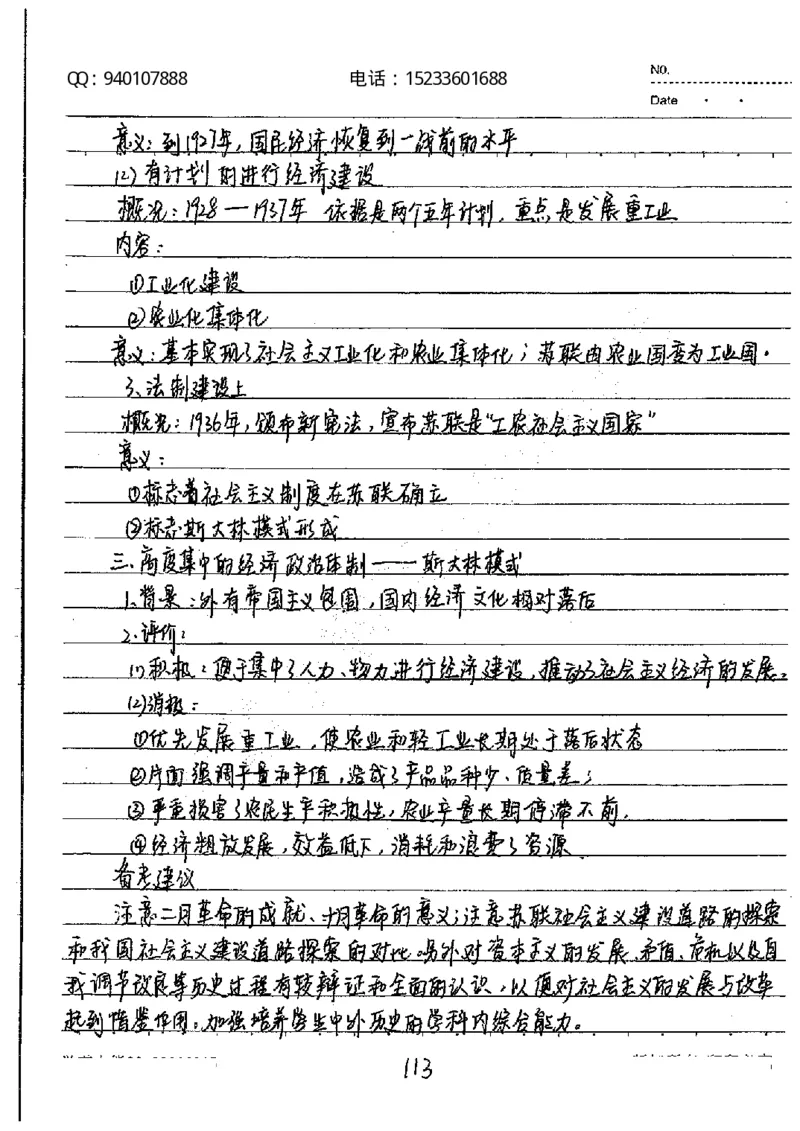 QQ：940107888
电话：15233601688
NO.
Date
意义：到1927年，国民经济恢复到一战前的水平
(2)有计划的进行经济建设
概况：1928—1937年 依据是两个五年计划，重点是发展重工业
内容：
①工业化建设
②农业化集体化
意义：基本实现了社会主义工业化和农业集体化；苏联由农业国变为工业国。
3、法制建设上
概况：1936年，颁布新宪法，宣布苏联是“工农社会主义国家”
意义：
①标志着社会主义制度在苏联确立
②标志斯大林模式形成
三、高度集中的经济政治体制——斯大林模式
1、背景：外有帝国主义包围，国内经济文化相对落后
2、评价：
(1)积极：便于集中了人力、物力进行经济建设，推动了社会主义经济的发展。
(2)消极：
①优先发展重工业，使农业和轻工业长期处于落后状态
②片面强调产量和产值，造成了产品品种少、质量差；
③严重损害了农民生产积极性，农业产量长期停滞不前．
④经济粗放发展，效益低下，消耗和浪费了资源
备考建议
注意二月革命的成就、十月革命的意义；注意苏联社会主义建设道路的探索
和我国社会主义建设道路探索的对比。另外对资本主义的发展、矛盾、危机以及自
我调节改良等历史过程有较辩证和全面的认识，以便对社会主义的发展与改革
起到借鉴作用。加强培养学生中外历史的学科内综合能力。
113